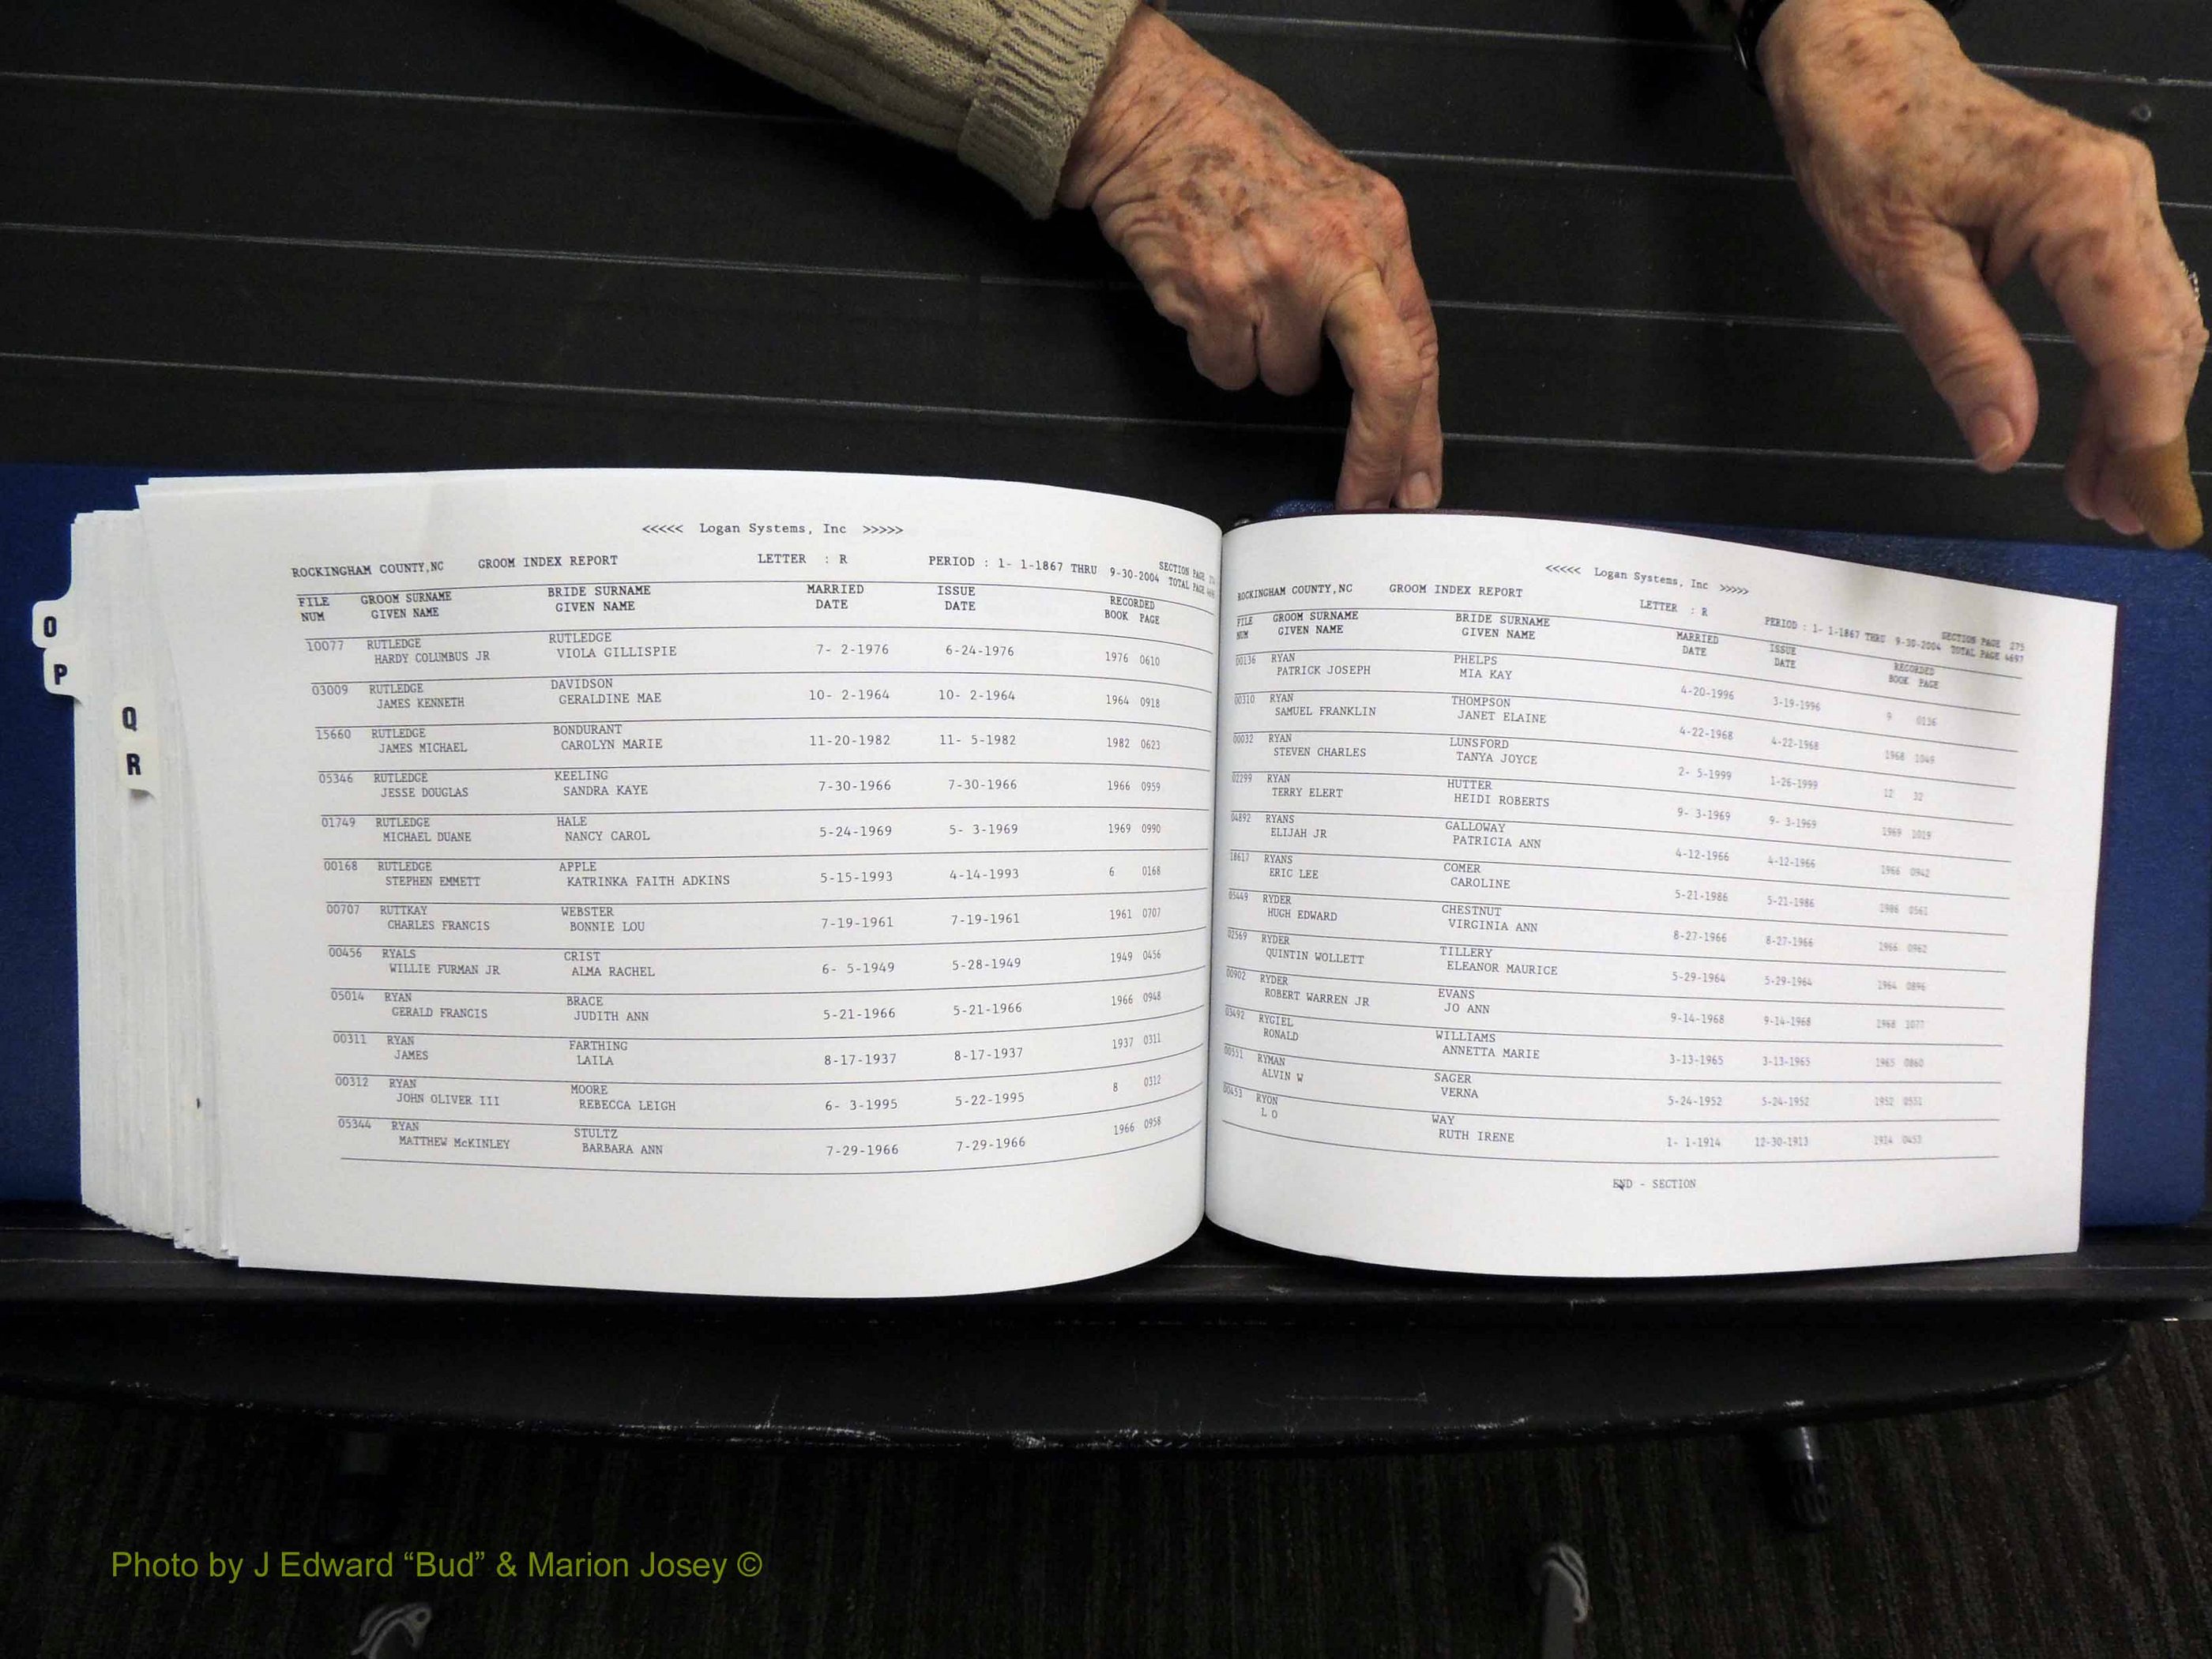 O
P
Q
R
<<<<< Logan Systems, Inc >>>>>
ROCKINGHAM COUNTY,NC GROOM INDEX REPORT LETTER : R PERIOD : 1- 1-1867 THRU 9-30-2004 SECTION PAGE
TOTAL PAGE
FILE GROOM SURNAME BRIDE SURNAME MARRIED ISSUE RECORDED
NUM GIVEN NAME GIVEN NAME DATE DATE BOOK PAGE
10077 RUTLEDGE RUTLEDGE 7- 2-1976 6-24-1976 1976 0610
HARDY COLUMBUS JR VIOLA GILLISPIE
03009 RUTLEDGE DAVIDSON 10- 2-1964 10- 2-1964 1964 0918
JAMES KENNETH GERALDINE MAE
15660 RUTLEDGE BONDURANT 11-20-1982 11- 5-1982 1982 0623
JAMES MICHAEL CAROLYN MARIE
05346 RUTLEDGE KEELING 7-30-1966 7-30-1966 1966 0959
JESSE DOUGLAS SANDRA KAYE
01749 RUTLEDGE HALE 5-24-1969 5- 3-1969 1969 0990
MICHAEL DUANE NANCY CAROL
00168 RUTLEDGE APPLE 5-15-1993 4-14-1993 6 0168
STEPHEN EMMETT KATRINKA FAITH ADKINS
00707 RUTTKAY WEBSTER 7-19-1961 7-19-1961 1961 0707
CHARLES FRANCIS BONNIE LOU
00456 RYALS CRIST 6- 5-1949 5-28-1949 1949 0456
WILLIE FURMAN JR ALMA RACHEL
05014 RYAN BRACE 5-21-1966 5-21-1966 1966 0948
GERALD FRANCIS JUDITH ANN
00311 RYAN FARTHING 8-17-1937 8-17-1937 1937 0311
JAMES LAILA
00312 RYAN MOORE 6- 3-1995 5-22-1995 8 0312
JOHN OLIVER III REBECCA LEIGH
05344 RYAN STULTZ 7-29-1966 7-29-1966 1966 0958
MATTHEW McKINLEY BARBARA ANN
<<<<< Logan Systems, Inc >>>>>
ROCKINGHAM COUNTY,NC GROOM INDEX REPORT LETTER : R PERIOD : 1- 1-1867 THRU 9-30-2004 SECTION PAGE 275
TOTAL PAGE 4697
FILE GROOM SURNAME BRIDE SURNAME MARRIED ISSUE RECORDED
NUM GIVEN NAME GIVEN NAME DATE DATE BOOK PAGE
00136 RYAN PHELPS 4-20-1996 3-19-1996 9 0136
PATRICK JOSEPH MIA KAY
00310 RYAN THOMPSON 4-22-1968 4-22-1968 1968 1049
SAMUEL FRANKLIN JANET ELAINE
00032 RYAN LUNSFORD 2- 5-1999 1-26-1999 12 32
STEVEN CHARLES TANYA JOYCE
02299 RYAN HUTTER 9- 3-1969 9- 3-1969 1969 1019
TERRY ELERT HEIDI ROBERTS
04892 RYANS GALLOWAY 4-12-1966 4-12-1966 1966 0942
ELIJAH JR PATRICIA ANN
18617 RYANS COMER 5-21-1986 5-21-1986 1986 0561
ERIC LEE CAROLINE
05449 RYDER CHESTNUT 8-27-1966 8-27-1966 1966 0962
HUGH EDWARD VIRGINIA ANN
02569 RYDER TILLERY 5-29-1964 5-29-1964 1964 0896
QUINTIN WOLLETT ELEANOR MAURICE
00902 RYDER EVANS 9-14-1968 9-14-1968 1968 1077
ROBERT WARREN JR JO ANN
03492 RYGIEL WILLIAMS 3-13-1965 3-13-1965 1965 0860
RONALD ANNETTA MARIE
00551 RYMAN SAGER 5-24-1952 5-24-1952 1952 0551
ALVIN W VERNA
00453 RYON WAY 1- 1-1914 12-30-1913 1914 0453
L O RUTH IRENE
END - SECTION
Photo by J Edward “Bud” & Marion Josey ©